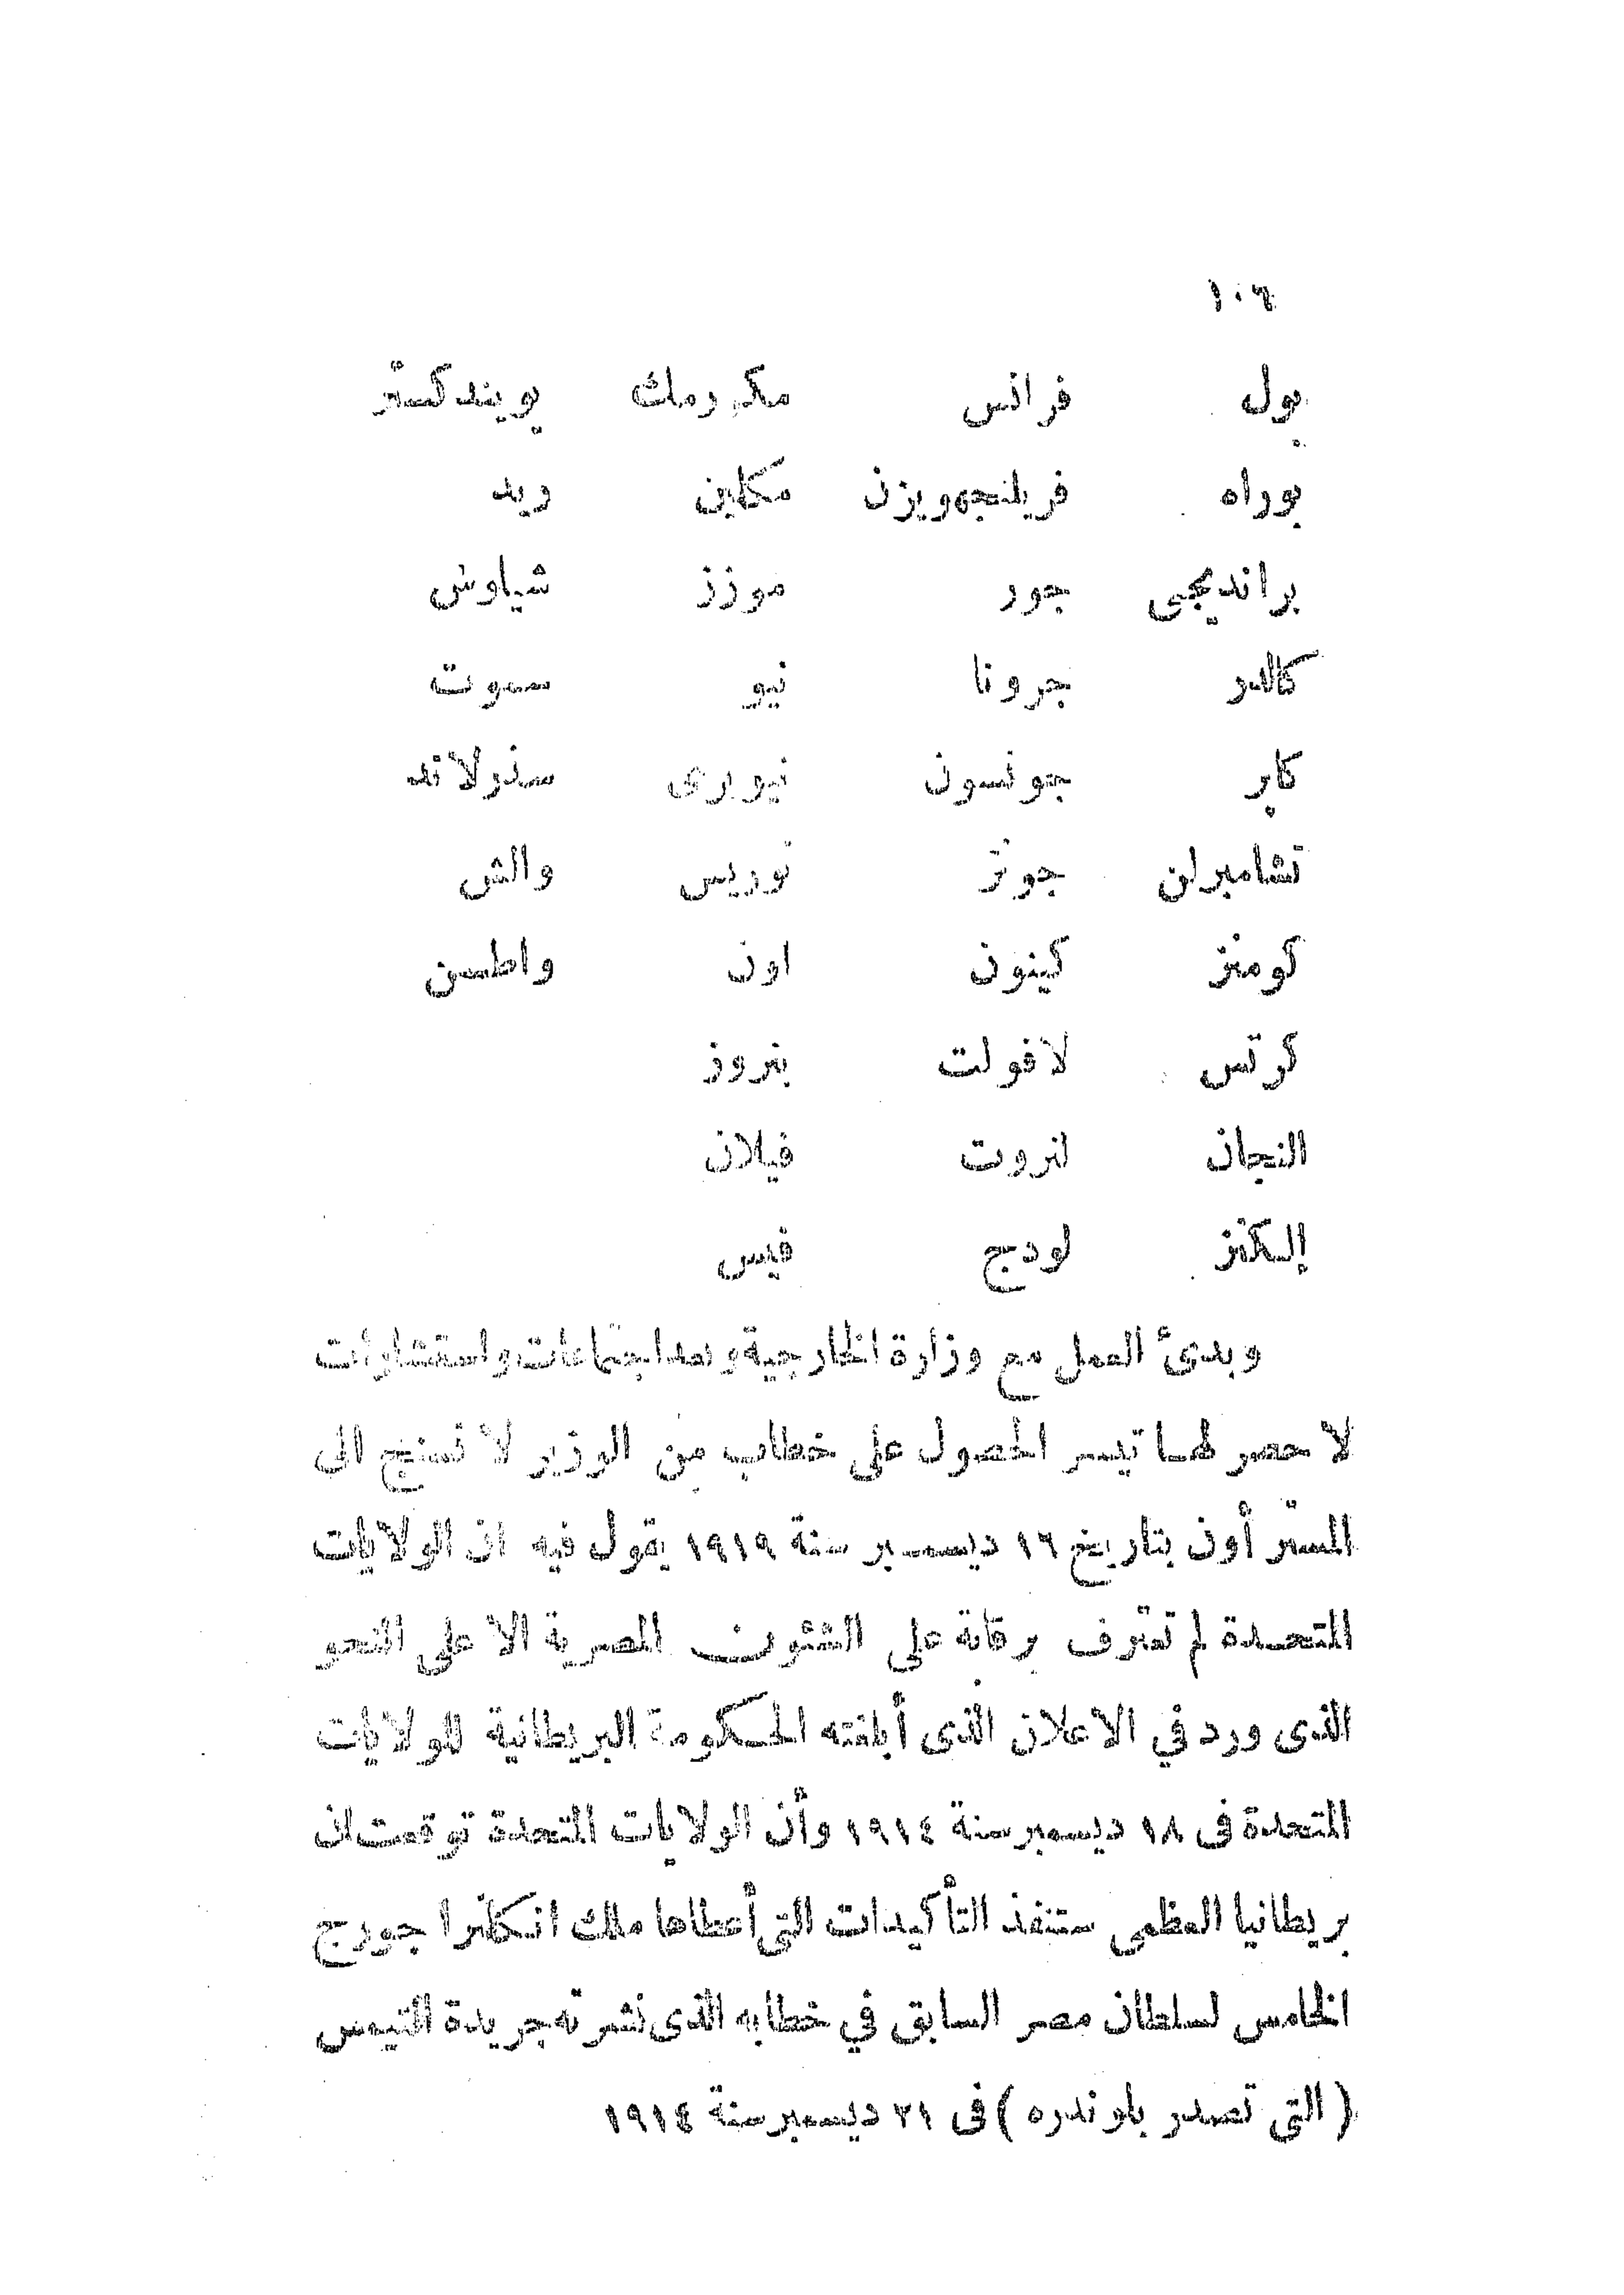 ١٠٦
بول فرانس مكرمك بويندكستر
بوراه فريلنجهويزن مكلين ريد
برانديجي جور موزز شياوش
كالدر جرونا نيو سموت
كابر جونسون نيوبرى سذرلاند
تشامبرلن جونز نوريس والش
كومنز كينون اون واطسن
كرتس لافولت بنروز
النجان لنروت فيلان
إلكنز لودج فيبس
وبدئ العمل مع وزارة الخارجية وبعد اجتماعات واستشارات
لا حصر لها تيسر الحصول على خطاب من الوزير لانسنج الى
المستر أون بتاريخ ١٦ ديسمبر سنة ١٩١٩ يقول فيه ان الولايات
المتحدة لم تعترف برقابة على الشئون المصرية الا على النحو
الذى ورد في الاعلان الذى أبلغته الحكومة البريطانية للولايات
المتحدة فى ١٨ ديسمبر سنة ١٩١٤ وأن الولايات المتحدة توقعت ان
بريطانيا العظمى ستنفذ التأكيدات التي أعطاها ملك انكلترا جورج
الخامس لسلطان مصر السابق في خطابه الذى نشرته جريدة التيمس
( التى تصدر بلوندره ) فى ٢١ ديسمبر سنة ١٩١٤